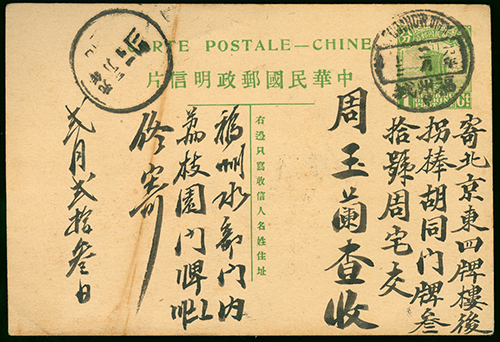 CARTE POSTALE—CHINE
中華民國郵政明信片
寄北京東四牌樓後
拐棒胡同門牌叁
拾號周宅交
周玉蘭查收
右邊只寫收信人名姓住址
福州水部門內
荔枝園門牌
寄
弍月弍拾叁日
FOOCHOW
福州